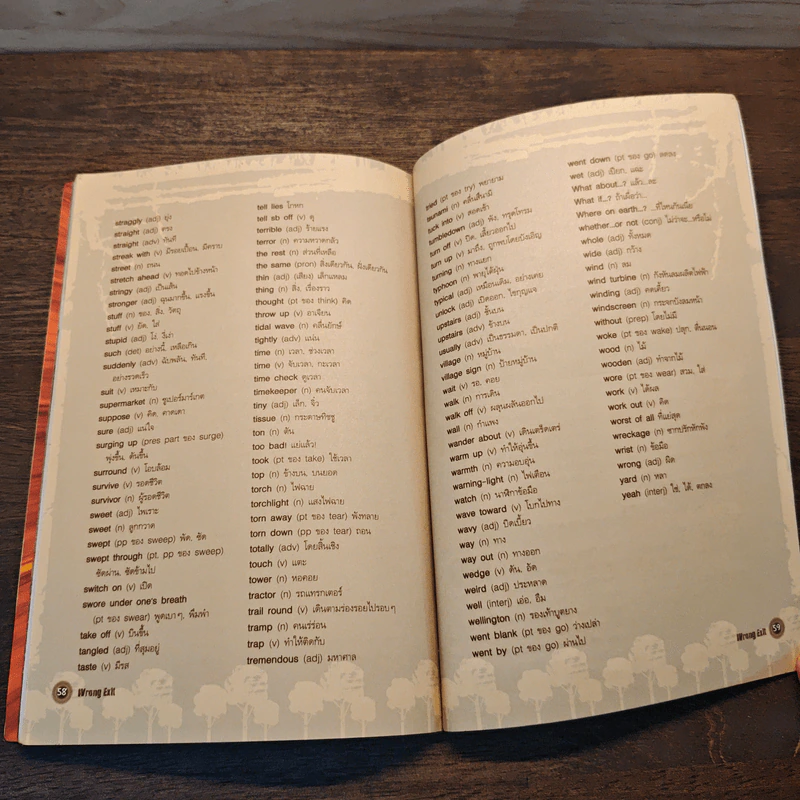 straggly (adj) ยุ่ง
straight (adj) ตรง
straight (adv) ทันที
streak with (v) มีรอยเปื้อน, มีคราบ
street (n) ถนน
stretch ahead (v) ทอดไปข้างหน้า
stringy (adj) เป็นเส้น
stronger (adj) ฉุนมากขึ้น, แรงขึ้น
stuff (n) ของ, สิ่ง, วัตถุ
stuff (v) ยัด, ใส่
stupid (adj) โง่, งี่เง่า
such (det) อย่างนี้, เหลือเกิน
suddenly (adv) ฉับพลัน, ทันที,
อย่างรวดเร็ว
suit (v) เหมาะกับ
supermarket (n) ซูเปอร์มาร์เกต
suppose (v) คิด, คาดเดา
sure (adj) แน่ใจ
surging up (pres part ของ surge)
พุ่งขึ้น, ดันขึ้น
surround (v) โอบล้อม
survive (v) รอดชีวิต
survivor (n) ผู้รอดชีวิต
sweet (adj) ไพเราะ
sweet (n) ลูกกวาด
swept (pp ของ sweep) พัด, ซัด
swept through (pt, pp ของ sweep)
ซัดผ่าน, ซัดข้ามไป
switch on (v) เปิด
swore under one's breath
(pt ของ swear) พูดเบาๆ, พึมพำ
take off (v) บินขึ้น
tangled (adj) ที่สุมอยู่
taste (v) มีรส
tell lies โกหก
tell sb off (v) ดุ
terrible (adj) ร้ายแรง
terror (n) ความหวาดกลัว
the rest (n) ส่วนที่เหลือ
the same (pron) สิ่งเดียวกัน, ผิงเดียวกัน
thin (adj) (เสียง) เล็กแหลม
thing (n) สิ่ง, เรื่องราว
thought (pt ของ think) คิด
throw up (v) อาเจียน
tidal wave (n) คลื่นยักษ์
tightly (adv) แน่น
time (n) เวลา, ช่วงเวลา
time (v) จับเวลา, กะเวลา
time check ดูเวลา
timekeeper (n) คนจับเวลา
tiny (adj) เล็ก, จิ๋ว
tissue (n) กระดาษทิชชู
ton (n) ตัน
too bad! แย่แล้ว!
took (pt ของ take) ใช้เวลา
top (n) ข้างบน, บนยอด
torch (n) ไฟฉาย
torchlight (n) แสงไฟฉาย
torn away (pt ของ tear) พังทลาย
torn down (pp ของ tear) ถอน
totally (adv) โดยสิ้นเชิง
touch (v) แตะ
tower (n) หอคอย
tractor (n) รถแทรกเตอร์
trail round (v) เดินตามร่องรอยไปรอบๆ
tramp (n) คนเร่ร่อน
trap (v) ทำให้ติดกับ
tremendous (adj) มหาศาล
58 Wrong Exit
tried (pt ของ try) พยายาม
tsunami (n) คลื่นสึนามิ
tuck into (v) สอดเข้า
tumbledown (adj) พัง, ทรุดโทรม
turn off (v) ปิด, เลี้ยวออกไป
turn up (v) มาถึง, ถูกพบโดยบังเอิญ
turning (n) ทางแยก
typhoon (n) พายุไต้ฝุ่น
typical (adj) เหมือนเดิม, อย่างเคย
unlock (adj) เปิดออก, ไขกุญแจ
upstairs (adj) ชั้นบน
upstairs (adv) ข้างบน
usually (adv) เป็นธรรมดา, เป็นปกติ
village (n) หมู่บ้าน
village sign (n) ป้ายหมู่บ้าน
wait (v) รอ, คอย
walk (n) การเดิน
walk off (v) ผลุนผลันออกไป
wall (n) กำแพง
wander about (v) เดินเตร็ดเตร่
warm up (v) ทำให้อุ่นขึ้น
warmth (n) ความอบอุ่น
warning-light (n) ไฟเตือน
watch (n) นาฬิกาข้อมือ
wave toward (v) โบกไปทาง
wavy (adj) บิดเบี้ยว
way (n) ทาง
way out (n) ทางออก
wedge (v) ดัน, อัด
weird (adj) ประหลาด
well (interj) เอ่อ, อืม
wellington (n) รองเท้าบูตยาง
went blank (pt ของ go) ว่างเปล่า
went by (pt ของ go) ผ่านไป
went down (pt ของ go) ลดลง
wet (adj) เปียก, แฉะ
What about...? แล้ว...ละ
What if...? ถ้าเผื่อว่า...
Where on earth...? ...ที่ไหนกันเนี่ย
whether...or not (conj) ไม่ว่าจะ...หรือไม่
whole (adj) ทั้งหมด
wide (adj) กว้าง
wind (n) ลม
wind turbine (n) กังหันลมผลิตไฟฟ้า
winding (adj) คดเคี้ยว
windscreen (n) กระจกบังลมหน้า
without (prep) โดยไม่มี
woke (pt ของ wake) ปลุก, ตื่นนอน
wood (n) ไม้
wooden (adj) ทำจากไม้
wore (pt ของ wear) สวม, ใส่
work (v) ได้ผล
work out (v) คิด
worst of all ที่แย่สุด
wreckage (n) ซากปรักหักพัง
wrist (n) ข้อมือ
wrong (adj) ผิด
yard (n) หลา
yeah (interj) ใช่, ได้, ตกลง
Wrong Exit 59